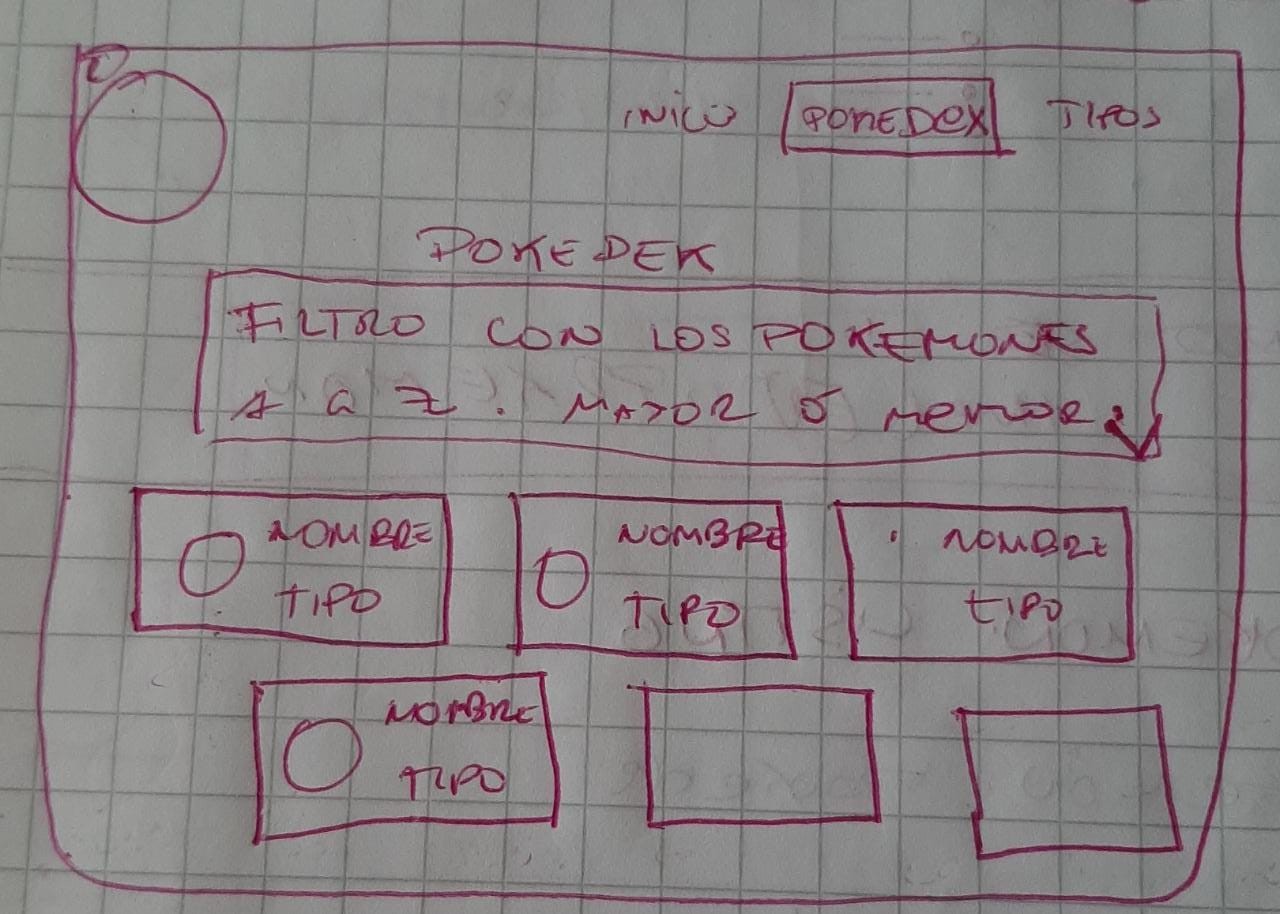 INICIO POKEDEX TIPOS
POKEDEX
FILTRO CON LOS POKEMONES
A a Z. MAYOR O MENOR
NOMBRE NOMBRE NOMBRE
TIPO TIPO TIPO
NOMBRE
TIPO